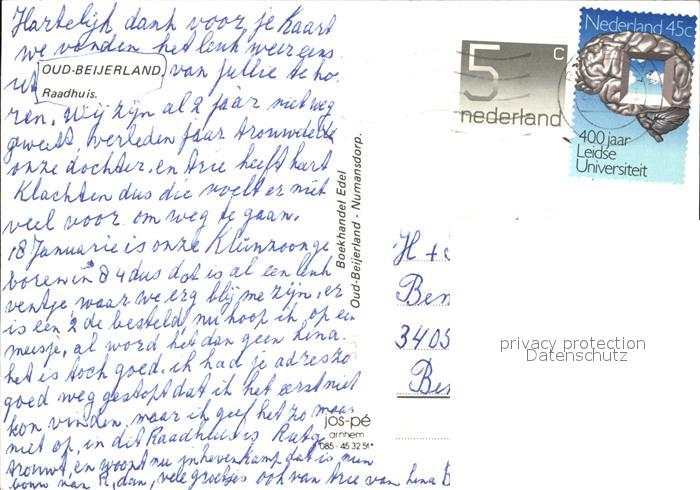 Hartelijk dank voor je Kaart
we vonden het leuk weer eens
iets van jullie te ho
OUD-BEIJERLAND,
Raadhuis.
ren, wij zijn al 2 jaar niet weg
geweest, verleden jaar trouwde
onze dochter, en Arie heeft hart
Klachten dus die voelt er niet
veel voor om weg te gaan.
18 Januarie is onze Kleinzoon ge
boren in 84 dus dat is al een leuk
ventje waar we erg blij me zijn, er
is een 2de besteld, nu hoop ik op een
meisje, al word het dan geen Lina.
het is toch goed. ik had je adres zo
goed weg gestopt dat ik het eerst niet
kon vinden, maar ik geef het zo maar
niet op, in dit Raadhuis is
trouwt, en woont nu in hevenkamp dat is
van R, dan, vele groetjes ook van Arie van Lina
Boekhandel Edel
Oud-Beijerland - Numansdorp.
jos-pé
arnhem
085-45 32 51*
5 c
nederland
Nederland 45c
400 jaar
Leidse
Universiteit
H +
Ben
3405
Ben
privacy protection
Datenschutz